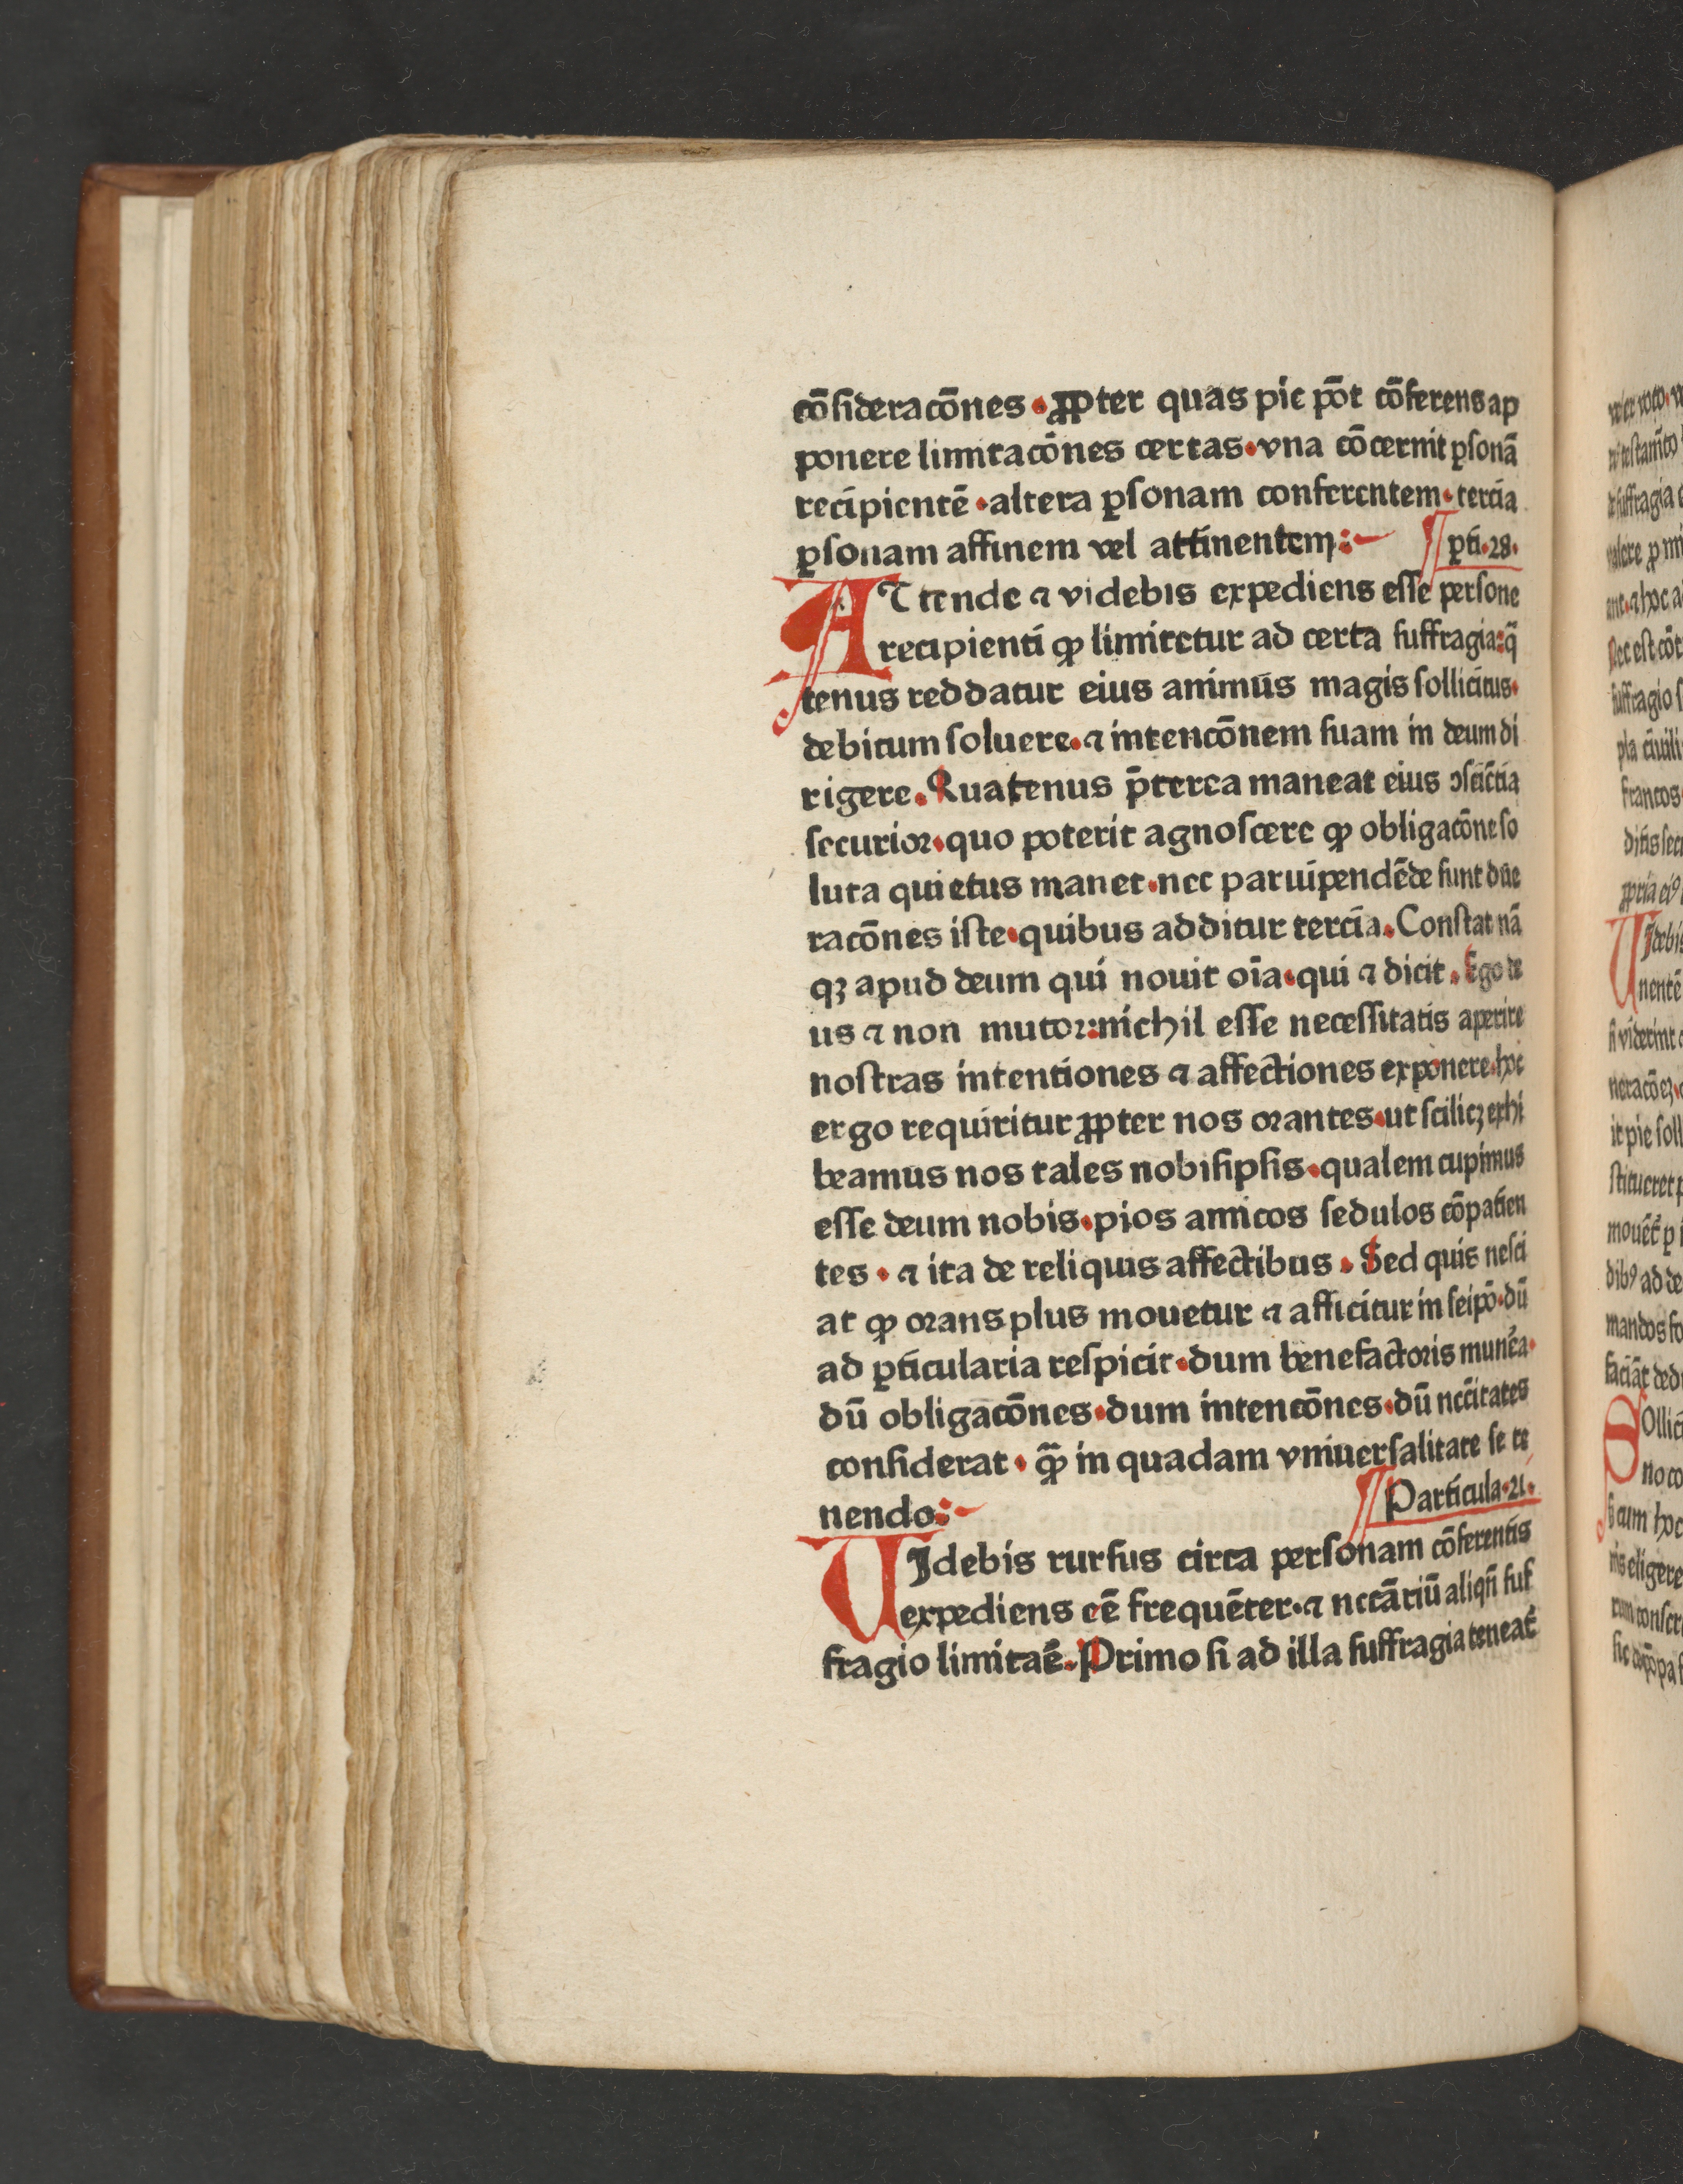 cōsideracōnes . ꝓpter quas pie pōt cōferens ap
ponere limitacōnes certas . vna cōcernit ꝑsonā
recipientē . altera ꝑsonam conferentem . tercia
ꝑsonam affinem vel attinentem :
ꝑti . 28 .
AT tende ⁊ videbis expediens esse persone
recipienti ꝙ limitetur ad certa suffragia : q̄
tenus reddatur eius animus magis sollicitus .
debitum soluere . ⁊ intencōnem suam in deum di
rigere . Quatenus p̄terea maneat eius ↄsciētia
securior . quo poterit agnoscere ꝙ obligacōne so
luta quietus manet . nec paruipendēde sunt due
racōnes iste . quibus additur tercia . Constat nā
qꝫ apud deum qui nouit oīa . qui ⁊ dicit . Ego de
us ⁊ non mutor : nichil esse necessitatis aperire
nostras intentiones ⁊ affectiones exponere . hoc
ergo requiritur ꝓpter nos orantes . ut scilicꝫ exhi
beamus nos tales nobisipsis . qualem cupimus
esse deum nobis . pios amicos sedulos cōpatien
tes . ⁊ ita de reliquis affectibus . Sed quis nesci
at ꝙ orans plus mouetur ⁊ afficitur in seipō . dū
ad ꝑticularia respicit . dum benefactoris mun̄ea .
dū obligacōnes . dum intencōnes . dū nec̄citates
considerat . ꝙ̄ in quadam vniuersalitate se te
nendo :
Particula . 21 .
VIdebis rursus circa personam cōferentis
expediens eē frequēter . ⁊ necāriū aliqn̄ suf
fragio limitaē . Primo si ad illa suffragia teneat᷑